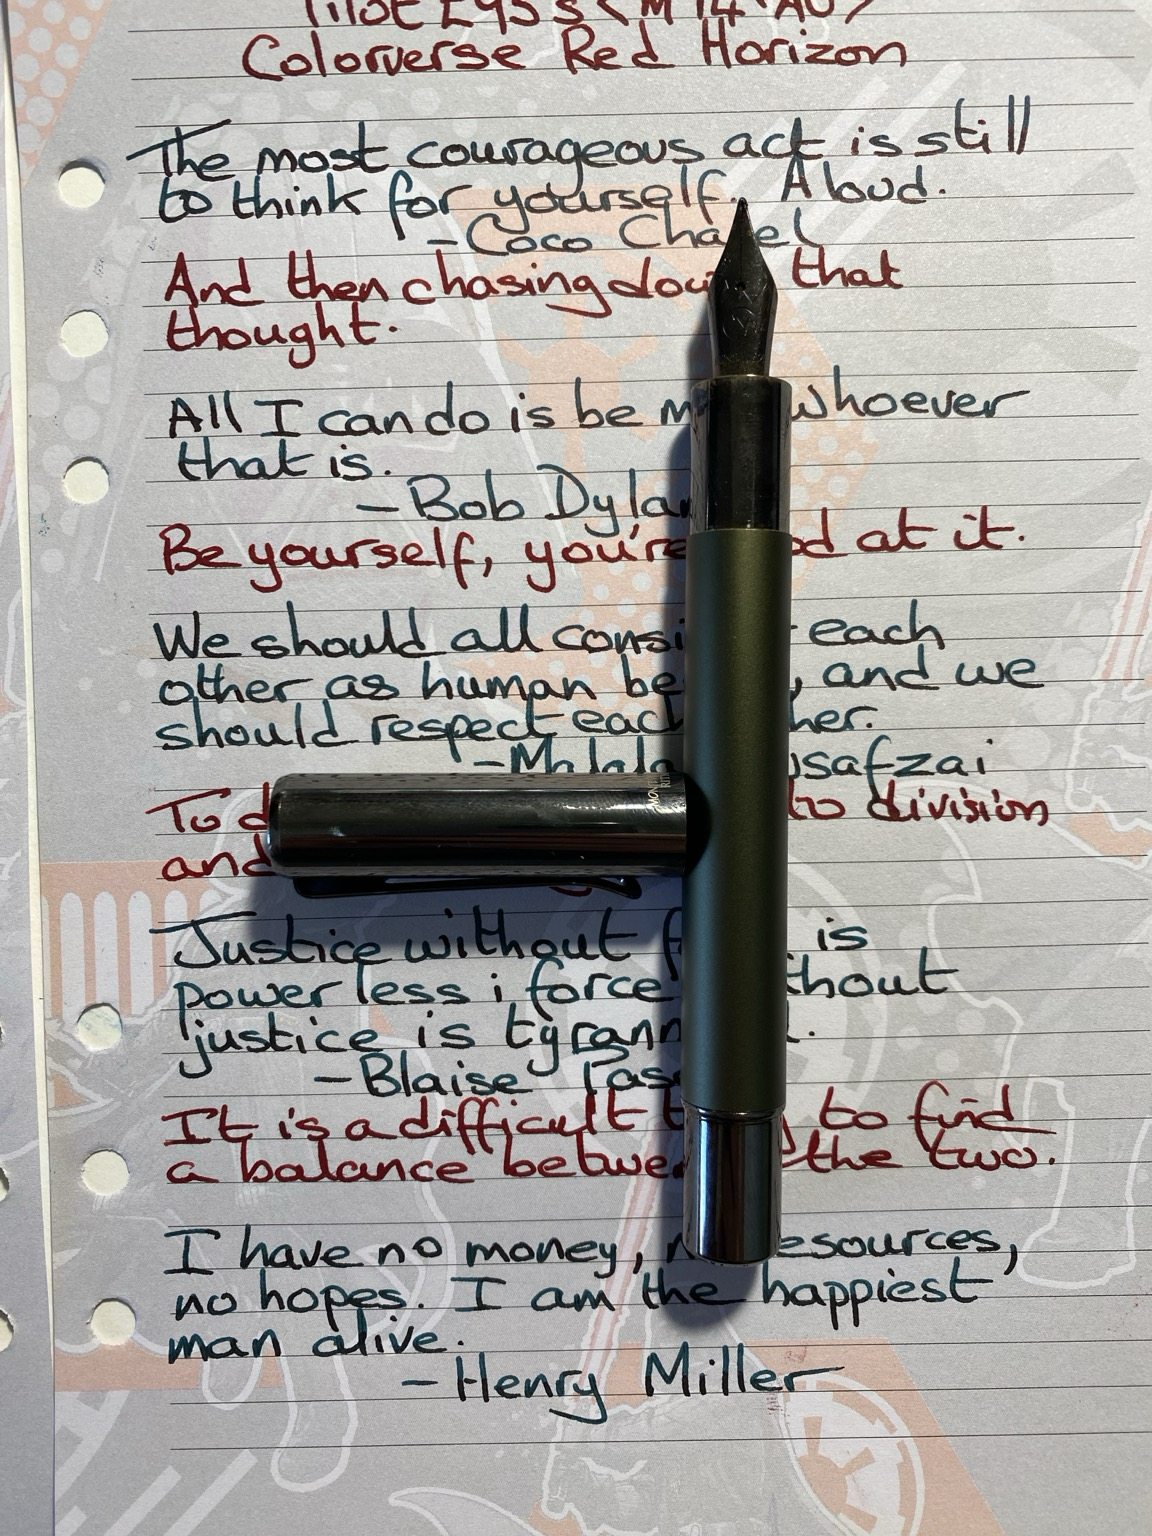 Colorverse Red Horizon
The most courageous act is still
to think for yourself. Aloud.
-Coco Chanel
And then chasing down that
thought.
All I can do is be me whoever
that is.
-Bob Dylan
Be yourself, you're at it.
We should all consider each
other as human and we
should respect each other.
-Malala Yousafzai
To to division
and
Justice without is
powerless; force without
justice is
-Blaise Pascal
It is a difficult to find
a balance between the two.
I have no money, resources,
no hopes. I am the happiest
man alive.
-Henry Miller